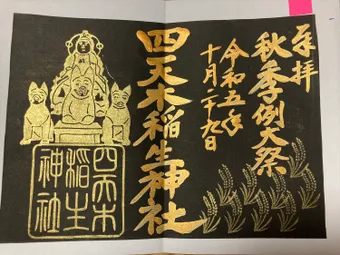 奉拝
秋季例大祭
令和五年
十月二十九日
四天木稲生神社
四天木
稲生
神社